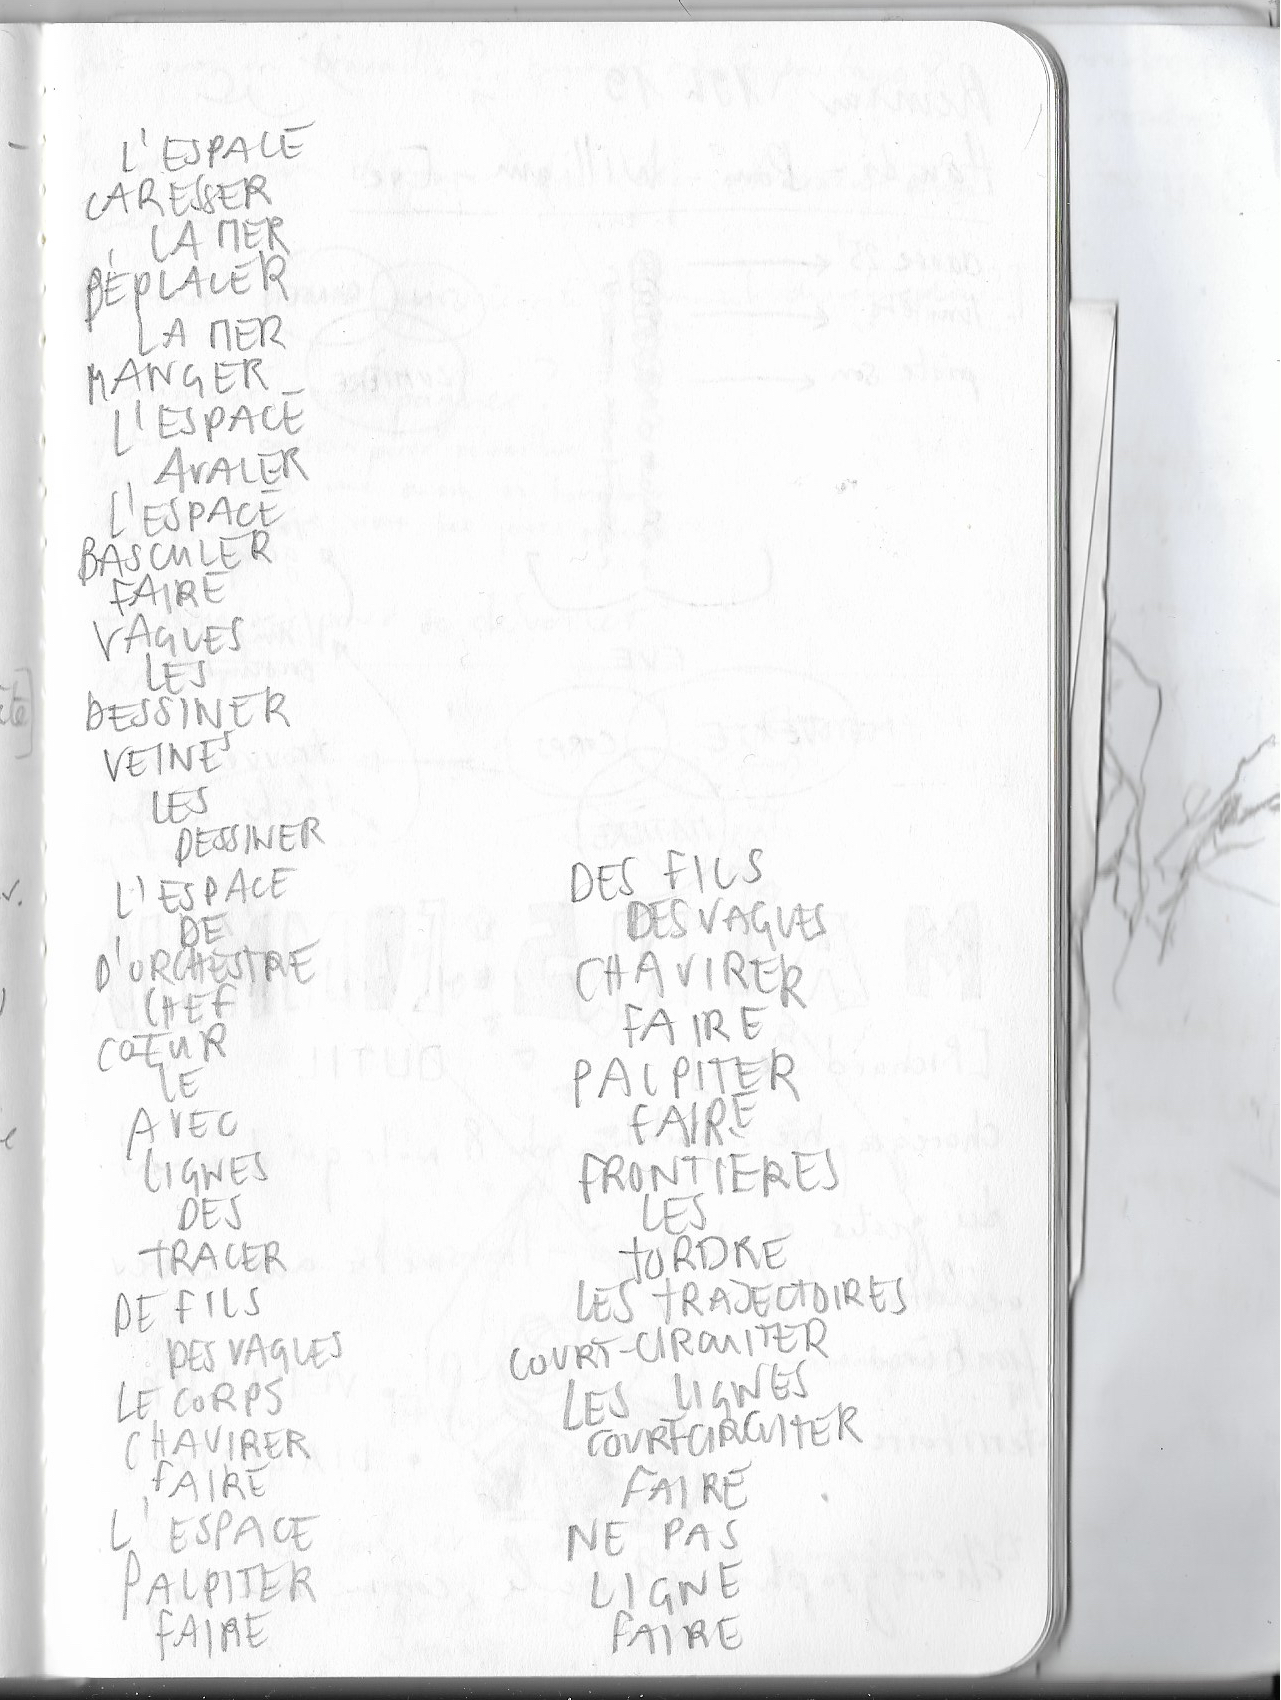 L'ESPACE
CARESSER
LA MER
DÉPLACER
LA MER
MANGER
L'ESPACE
AVALER
L'ESPACE
BASCULER
FAIRE
VAGUES
LES
DESSINER
VEINES
LES
DESSINER
L'ESPACE
DE
D'ORCHESTRE
CHEF
COEUR
LE
AVEC
LIGNES
DES
TRACER
DE FILS
DES VAGUES
LE CORPS
CHAVIRER
FAIRE
L'ESPACE
PALPITER
FAIRE
DES FILS
DES VAGUES
CHAVIRER
FAIRE
PALPITER
FAIRE
FRONTIERES
LES
TORDRE
LES TRAJECTOIRES
COURT-CIRCUITER
LES LIGNES
COURT-CIRCUITER
FAIRE
NE PAS
LIGNE
FAIRE